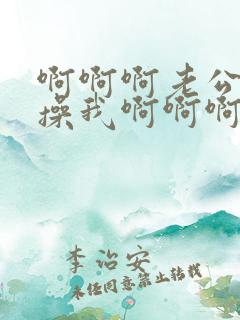 啊啊啊老公
操我啊啊啊
李治安
未经同意禁止转载